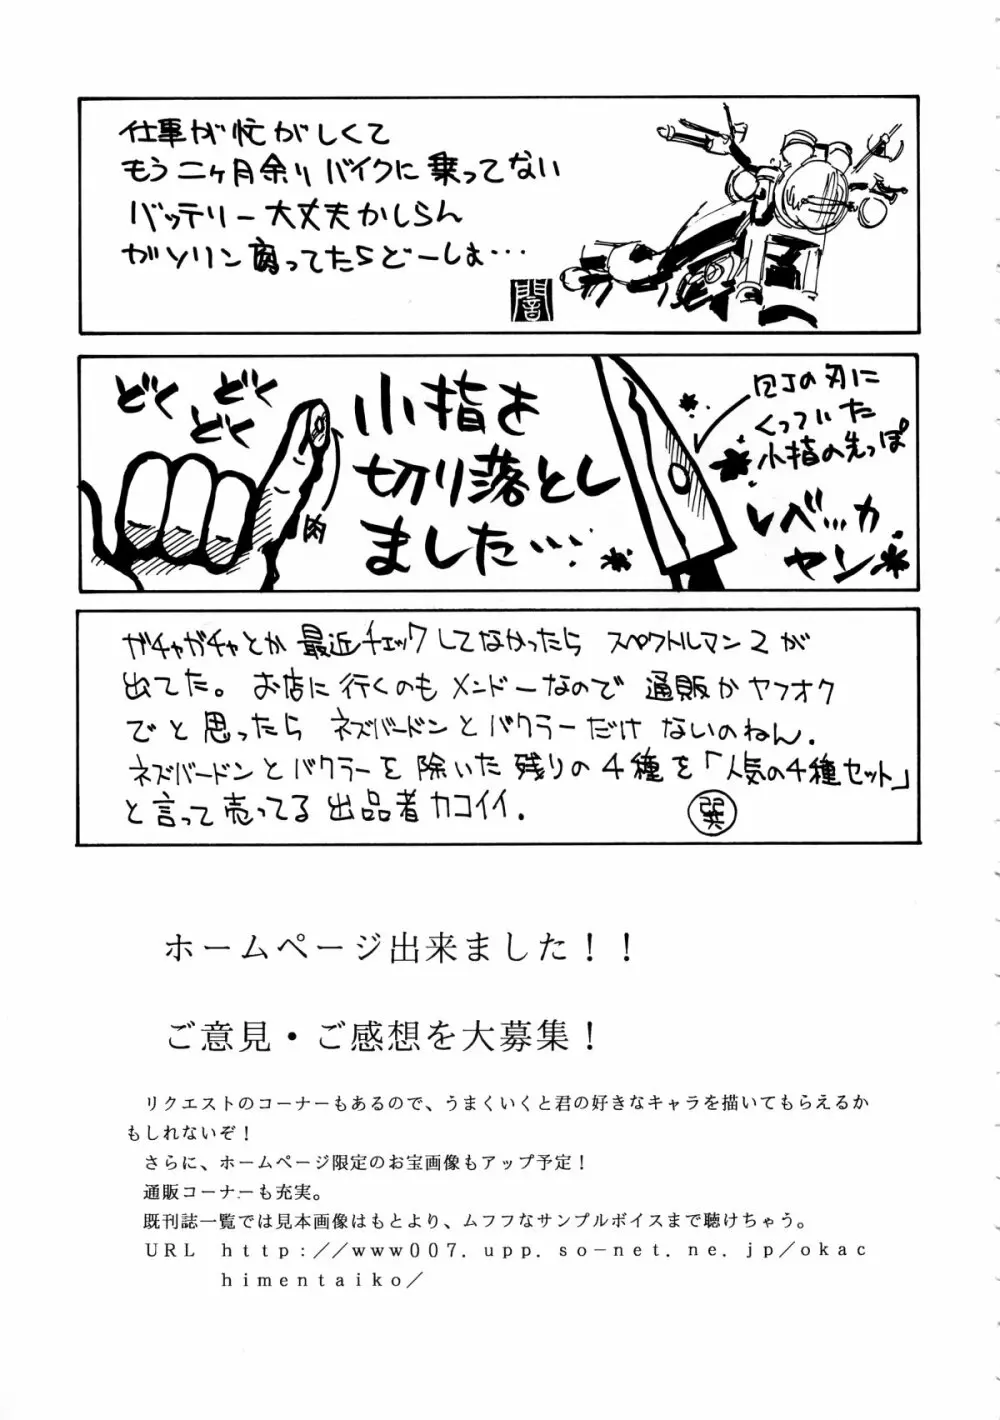 仕事が忙がしくて
もう二ヶ月余りバイクに乗ってない
バッテリー大丈夫かしらん
ガソリン腐ってたらどーしよ…
闇
どく
どく
どく
肉
小指を
切り落とし
ました…
包丁の刃に
くっついた
小指の先っぽ
レベッカ
ヤン
ガチャガチャとか最近チェックしてなかったら スペクトルマン2が
出てた。お店に行くのもメンドーなので 通販かヤフオク
でと思ったら ネズバードンとバクラーだけ ないのねん.
ネズバードンとバクラーを除いた残りの4種を「人気の4種セット」
と言って売ってる出品者カコイイ.
巽
ホームページ出来ました！！
ご意見・ご感想を大募集！
リクエストのコーナーもあるので、うまくいくと君の好きなキャラを描いてもらえるか
もしれないぞ！
さらに、ホームページ限定のお宝画像もアップ予定！
通販コーナーも充実。
既刊誌一覧では見本画像はもとより、ムフフなサンプルボイスまで聴けちゃう。
URL http://www007.upp.so-net.ne.jp/okac
himentaiko/